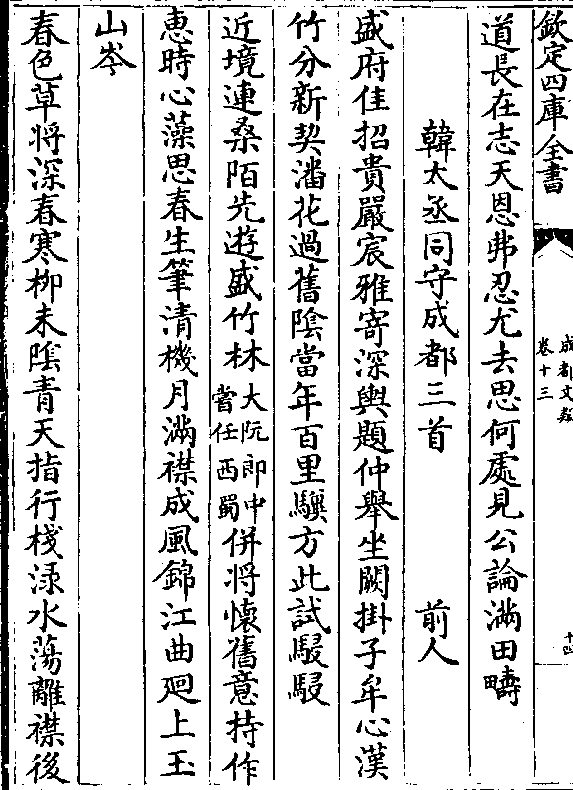 欽定四庫全書
成都文類
卷十三
十四
道長在志天恩弗忍尤去思何處見公論滿田疇
韓太丞同守成都三首 前人
盛府佳招貴嚴宸雅寄深輿題仲舉坐闕掛子牟心漢
竹分新契潘花過舊陰當年百里驥方此試駸駸
近境連桑陌先遊盛竹林大阮郎中嘗任西蜀併將懷舊意持作
惠時心藻思春生筆清機月滿襟成風錦江曲廻上玉
山岑
春色草将深春寒柳未陰青天指行棧渌水蕩離襟後